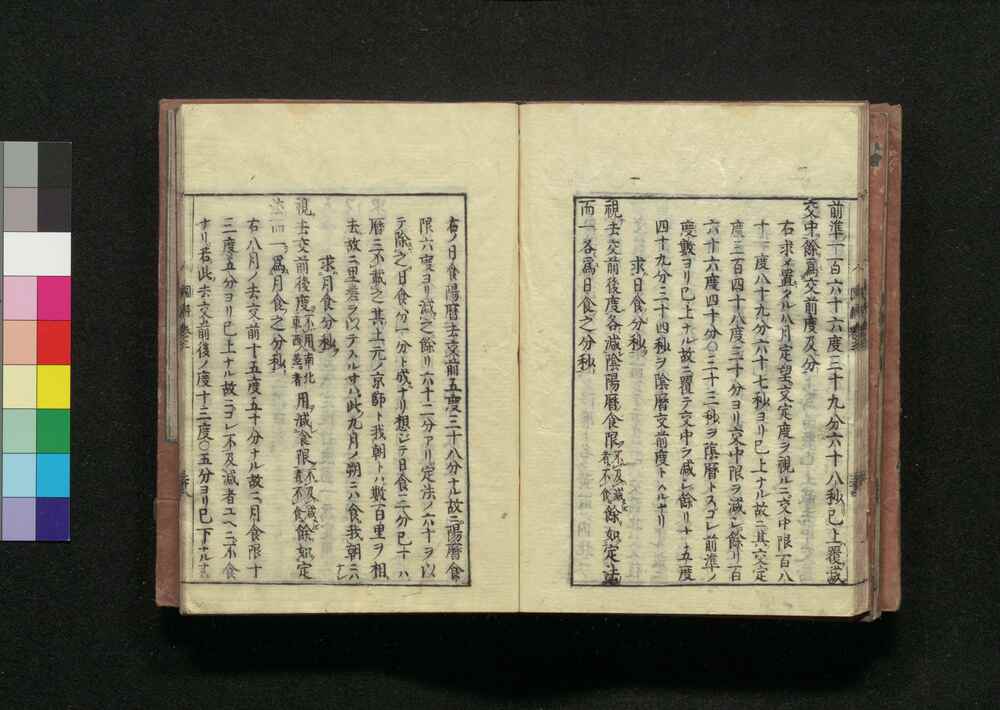 前準一百六十六度三十九分六十八秒已上覆減
交中餘爲交前度及分
右求メ置クル八月定望交定度ヲ視ルニ交中限百八
十一度八十九分六十七秒ヨリ已上ナル故ニ其交定
度三百四十八度三十分ヨリ交中限ヲ減シ餘リ一百
六十六度四十分〇三十三秒ヲ陰暦トスコレ前準ノ
度數ヨリ已上ナル故ニ覆テ交中ヲ減シ餘リ十五度
四十九分三十四秒ヲ陰暦交前度トハルナリ
求日食分秒
視去交前後度各減陰陽暦食限不及減者不食餘如定法
而一各爲日食之分秒
右ノ日食陽暦去交前五度三十八分ナル故ニ陽暦食
限六度ヨリ減之餘リ六十二分アリ定法ノ六十ヲ以
テ除之日食ノ分一分ト成ナリ想ジテ日食二分已下ハ
暦ニ不載之其上元ノ京師ト我朝トハ數百里ヲ相
去故ニ里差ヲ以テスルサハ此九月ノ朔ニハ食我朝ニハナレ
求月食分秒
視去交前後度不用南北東西差者用減食限不及減者不食餘如定
法而一爲月食之分秒
右八月ノ去交前十五度五十分ナル故ニ月食限十
三度五分ヨリ已上ナル故ニコレ不及減者ユヘニ不食
ナリ若此去交前後ノ度十三度〇五分ヨリ已下ナルサハ